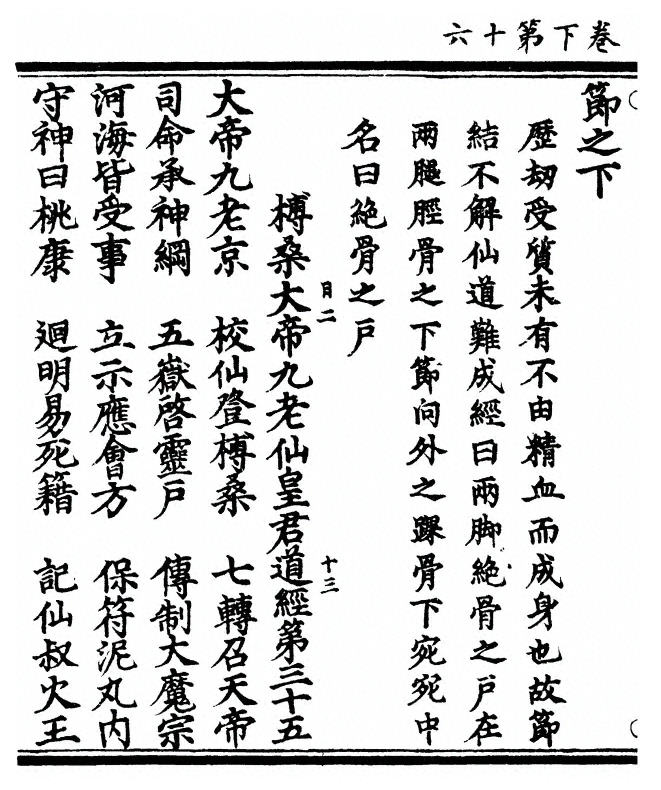 卷下第十六
節之下
歷劫受質未有不由精血而成身也故節
結不解仙道難成經曰兩脚絶骨之戶在
兩腿脛骨之下節向外之踝骨下宛宛中
名曰絶骨之戶
日二 十三
榑桑大帝九老仙皇君道經第三十五
大帝九老京 校仙登榑桑 七轉召天帝
司命承神綱 五嶽啓靈戶 傳制大魔宗
河海皆受事 立示應會方 保符泥丸內
守神曰桃康 迴明易死籍 記仙叔火王